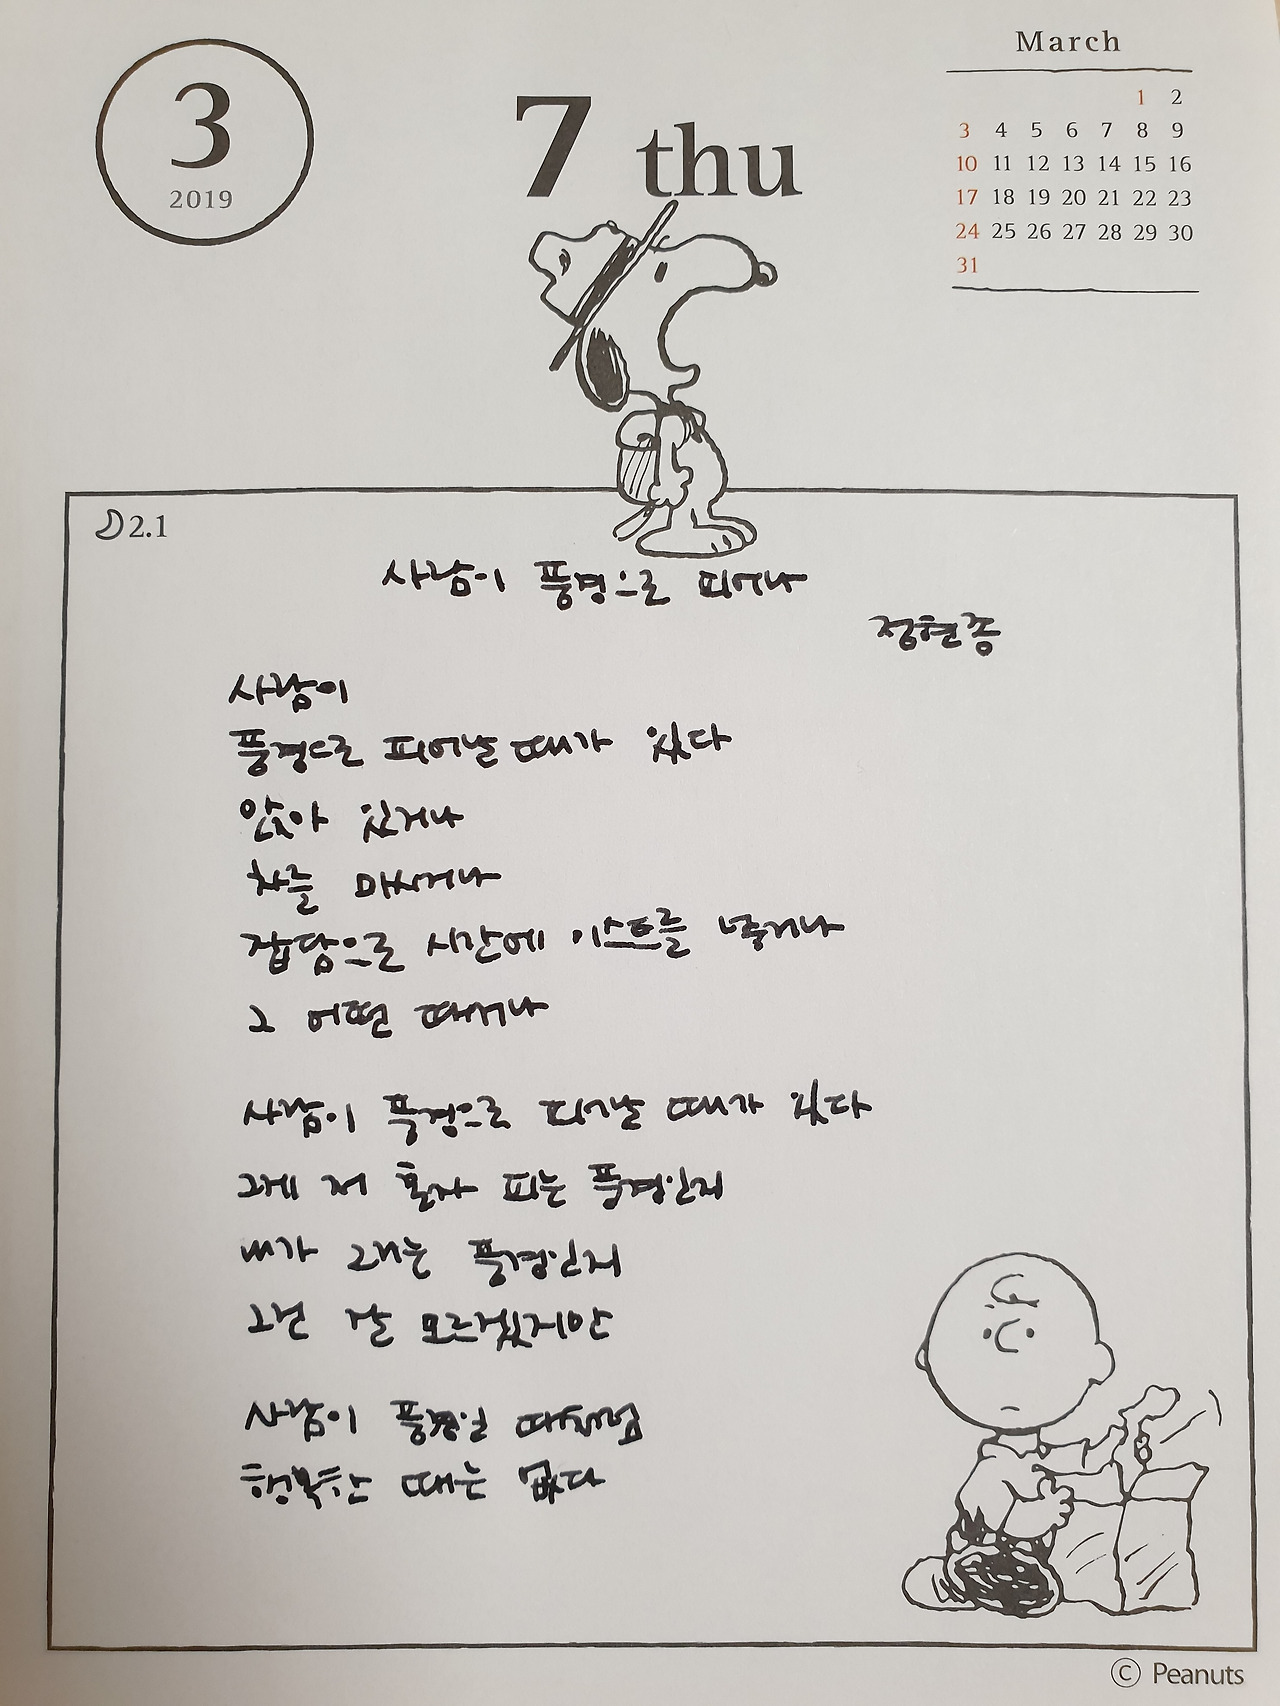 3
2019
7 thu
March
1 2
3 4 5 6 7 8 9
10 11 12 13 14 15 16
17 18 19 20 21 22 23
24 25 26 27 28 29 30
31
2.1
사람이 풍경으로 피어나
정현종
사람이
풍경으로 피어날 때가 있다
앉아 있거나
차를 마시거나
잡담으로 시간에 이스트를 넣거나
그 어떤 때거나
사람이 풍경으로 피어날 때가 있다
그게 저 혼자 피는 풍경인지
내가 그리는 풍경인지
그건 잘 모르겠지만
사람이 풍경일 때처럼
행복한 때는 없다
© Peanuts